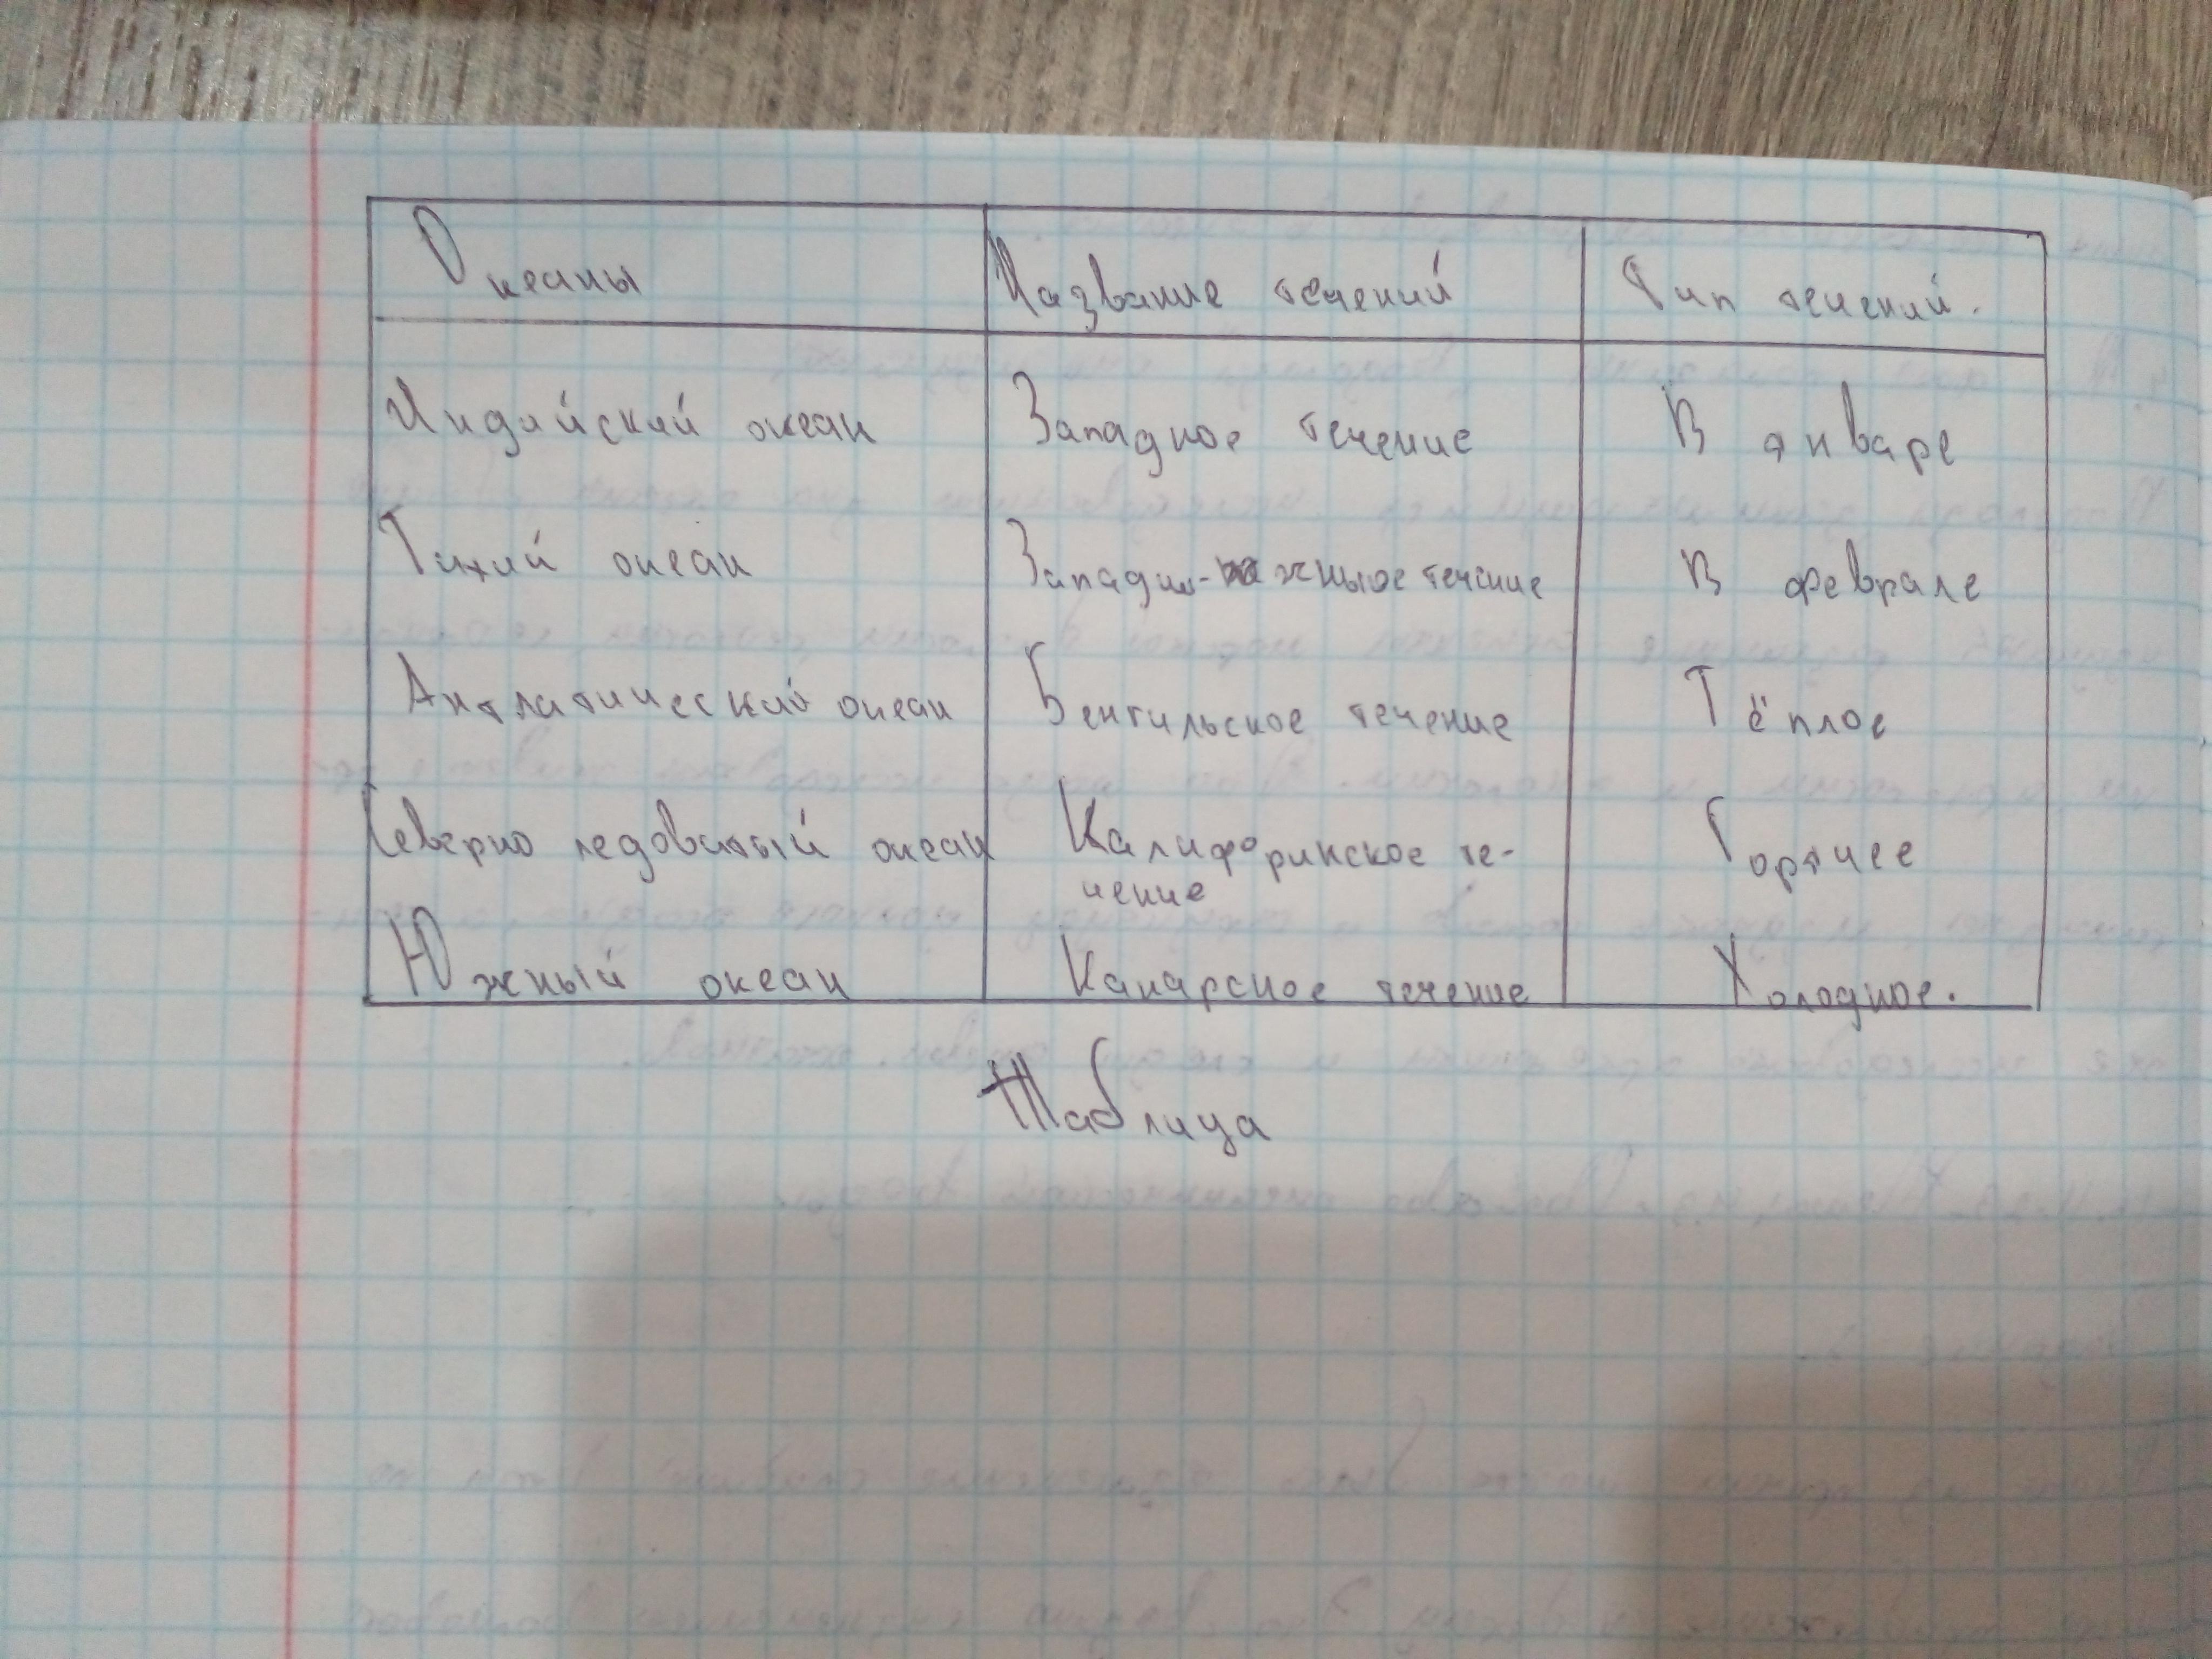 Океаны Название течений Тип течений.
Индийский океан Западное течение В январе
Тихий океан Западно-южныое течение В феврале
Антлатический океан Бенгильское течение Тёплое
Северно ледовитый океан Калифоринское те-
чение Горячее
Южный океан Канарское течение Холодное.
Таблица